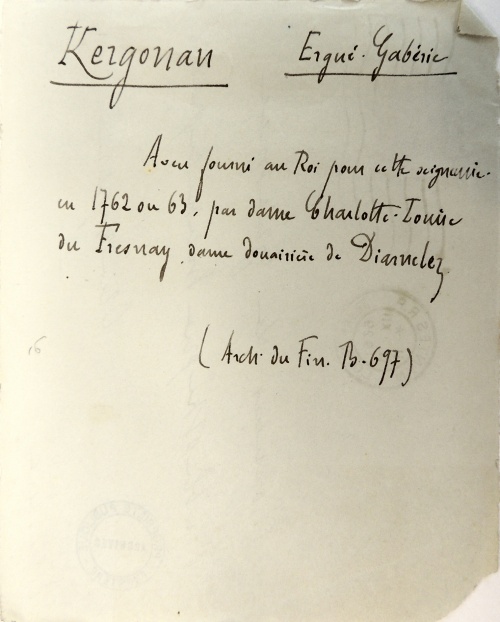 Kergonan Ergué-Gabéric
Aveu fourni au Roi pour cette seigneurie
en 1762 ou 63, par dame Charlotte-Louise
du Fresnay dame douairière de Diarnelez
(Arch. du Fin. B. 697)
16